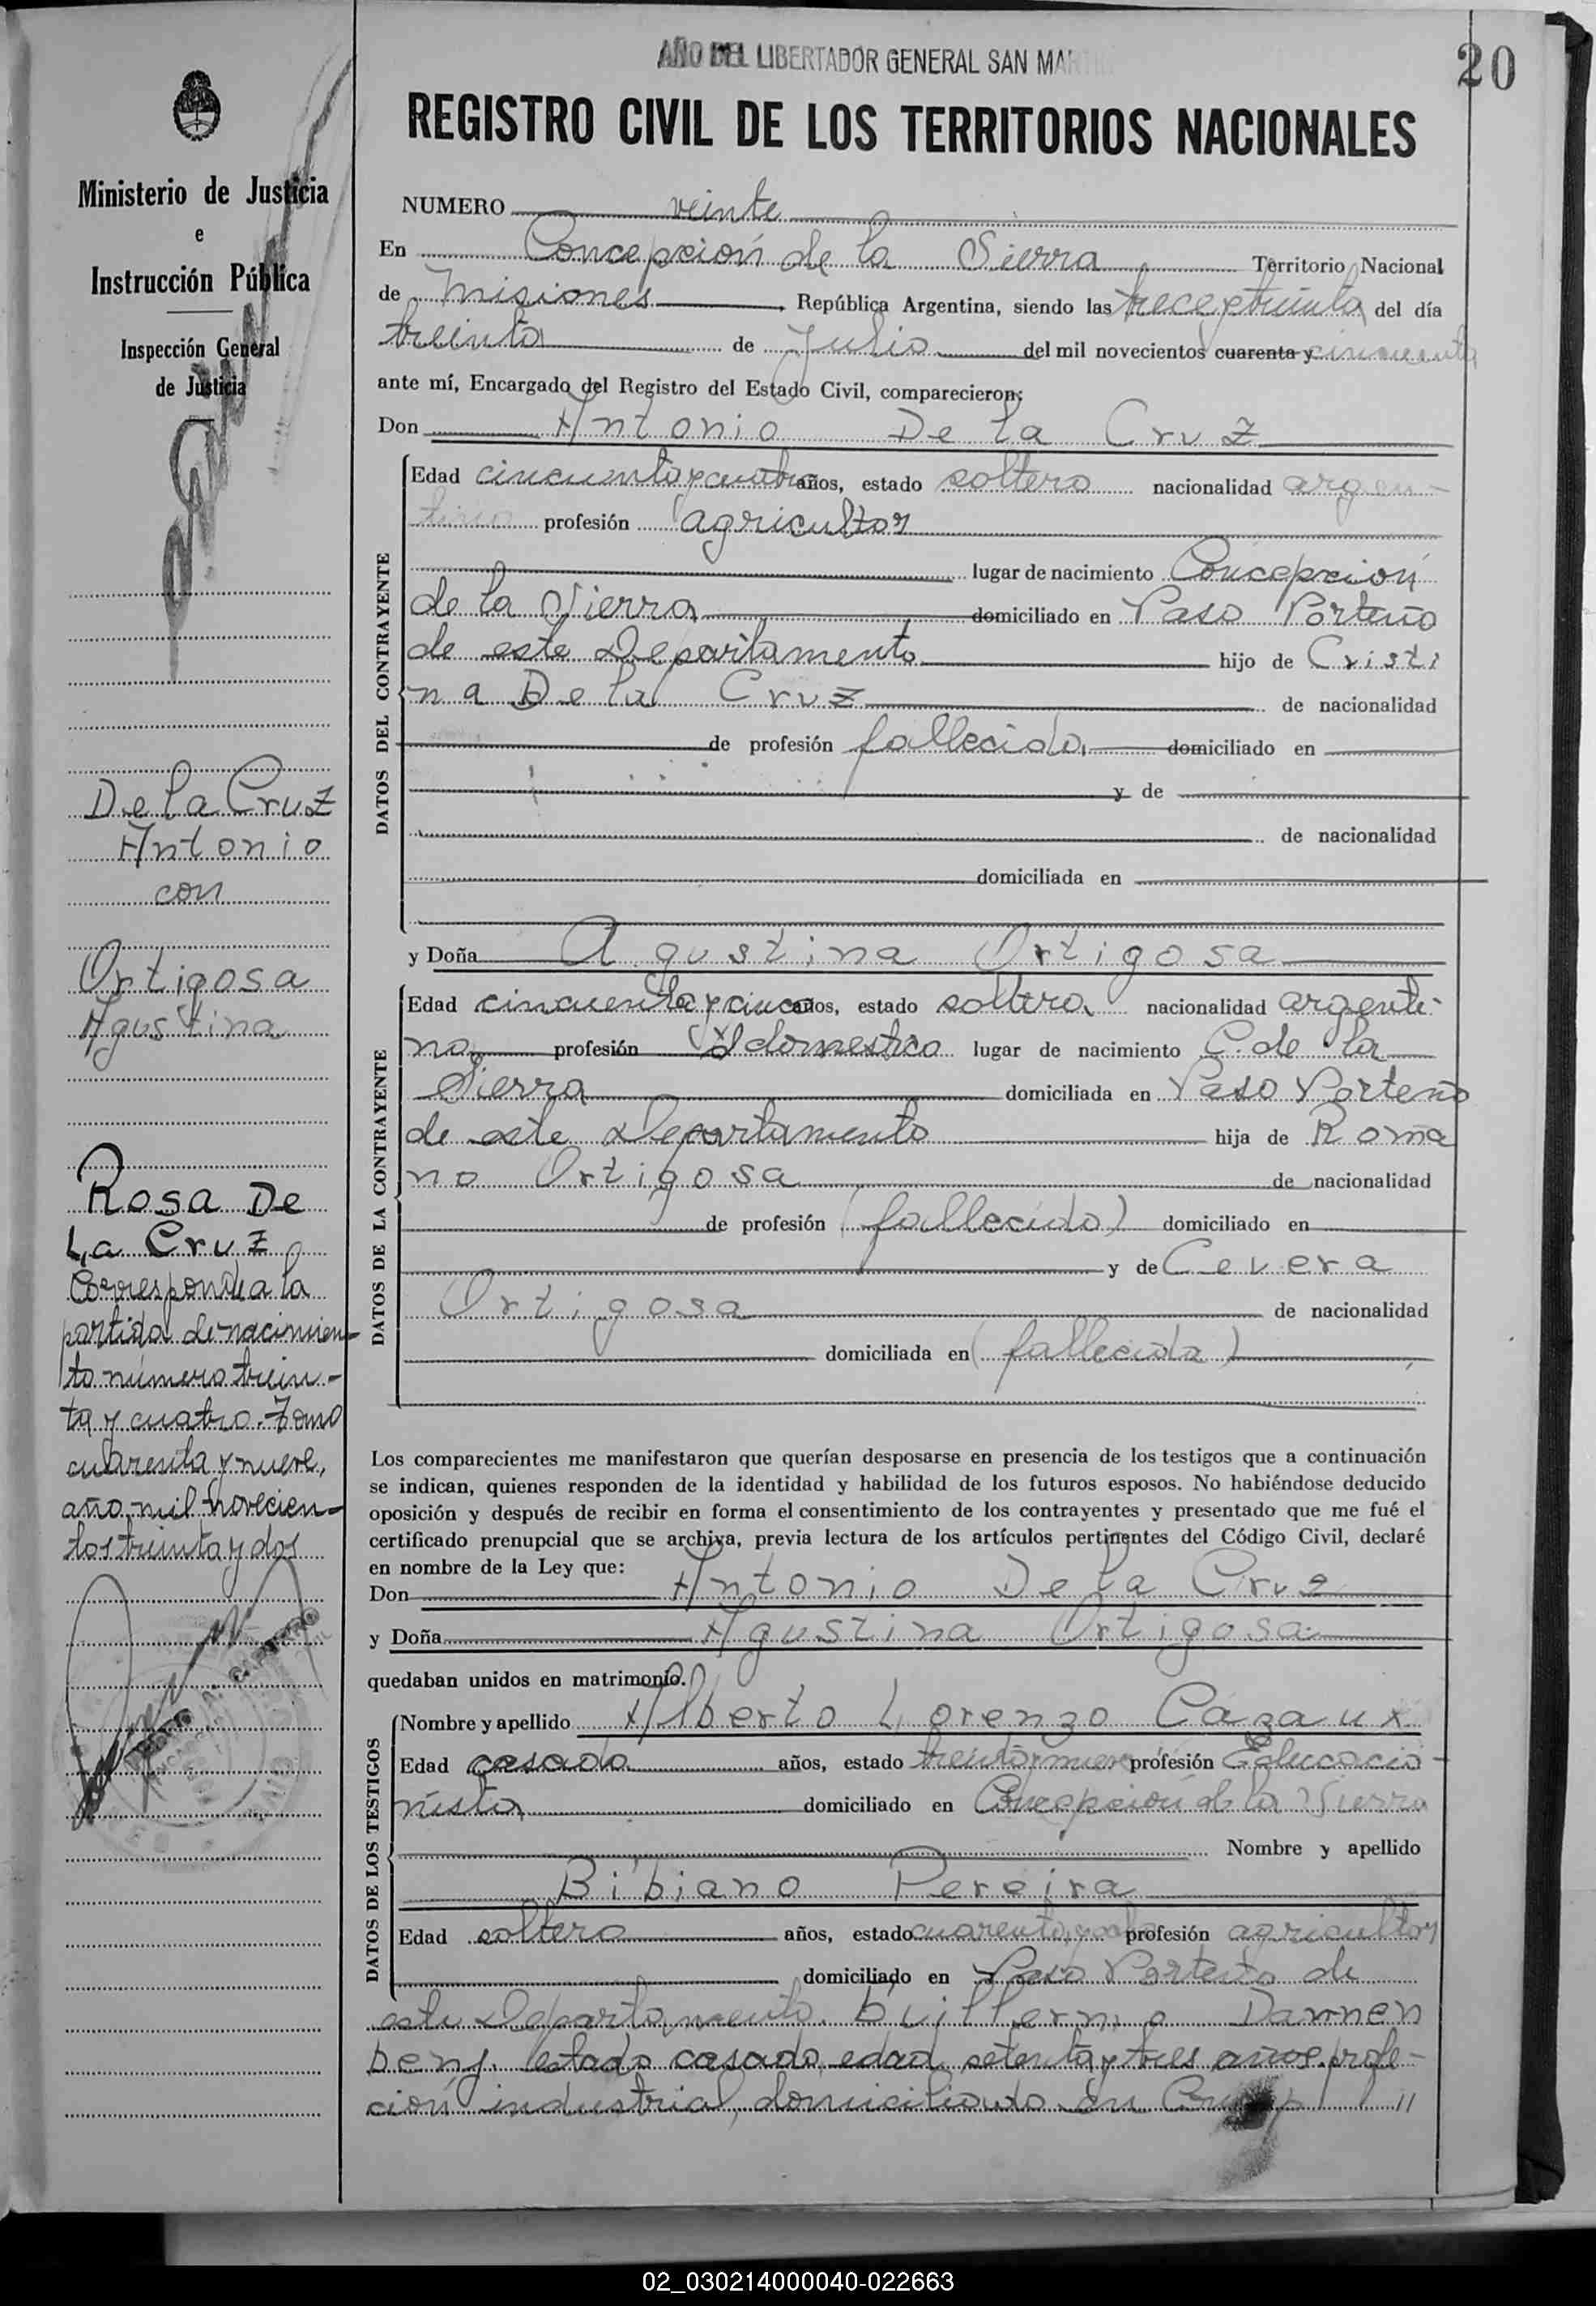 AÑO DEL LIBERTADOR GENERAL SAN MARTIN
20
REGISTRO CIVIL DE LOS TERRITORIOS NACIONALES
Ministerio de Justicia
e
Instrucción Pública
Inspección General
de Justicia
De la Cruz
Antonio
con
Ortigosa
Agustina
Rosa De
La Cruz
Corresponde a la
partida de nacimien-
to número trein-
ta y cuatro. Tomo
cuarenta y nueve,
año mil novecien-
tos treinta y dos
NUMERO veinte
En Concepción de la Sierra Territorio Nacional
de Misiones República Argentina, siendo las trece y treinta del día
treinta de Julio del mil novecientos cuarenta y cincuenta
ante mí, Encargado del Registro del Estado Civil, comparecieron:
Don Antonio De la Cruz
DATOS DEL CONTRAYENTE
Edad cincuenta y cuatro años, estado soltero nacionalidad argen-
tino profesión agricultor
lugar de nacimiento Concepción
de la Sierra domiciliado en Paso Porteño
de este Departamento hijo de Cristi
na De la Cruz de nacionalidad
de profesión fallecida domiciliado en
y de
de nacionalidad
domiciliada en
y Doña Agustina Ortigosa
DATOS DE LA CONTRAYENTE
Edad cincuenta y cinco años, estado soltera nacionalidad argenti-
na profesión domestico lugar de nacimiento C. de la
Sierra domiciliada en Paso Porteño
de este Departamento hija de Roma
no Ortigosa de nacionalidad
de profesión (fallecido) domiciliado en
y de Cevera
Ortigosa de nacionalidad
domiciliada en (fallecida)
Los comparecientes me manifestaron que querían desposarse en presencia de los testigos que a continuación
se indican, quienes responden de la identidad y habilidad de los futuros esposos. No habiéndose deducido
oposición y después de recibir en forma el consentimiento de los contrayentes y presentado que me fué el
certificado prenupcial que se archiva, previa lectura de los artículos pertinentes del Código Civil, declaré
en nombre de la Ley que:
Don Antonio De la Cruz
y Doña Agustina Ortigosa
quedaban unidos en matrimonio.
DATOS DE LOS TESTIGOS
Nombre y apellido Alberto Lorenzo Cazaux
Edad casado años, estado treinta y nueve profesión Educacio-
nista domiciliado en Concepción de la Sierra
Nombre y apellido
Bibiano Pereira
Edad soltero años, estado cuarenta y profesión agricultor
domiciliado en Paso Porteño de
este Departamento. Guillermo Dannen
berg. estado casado, edad setenta y tres años, profe-
ción industrial, domiciliado en
02_030214000040-022663